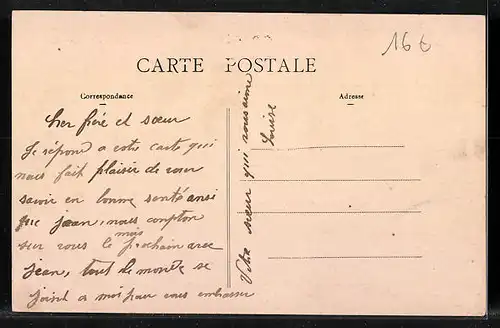 16 €
CARTE POSTALE
Correspondance
Adresse
Cher frère et sœur
Je répond a votre carte qui
nous fait plaisir de vous
savoir en bonne santé ansi
que jean, nous compton
sur vous le mois prochain avec
jean, tout le monde se
joint a moi pour vous embrasser
Votre sœur qui vous aime
Louise